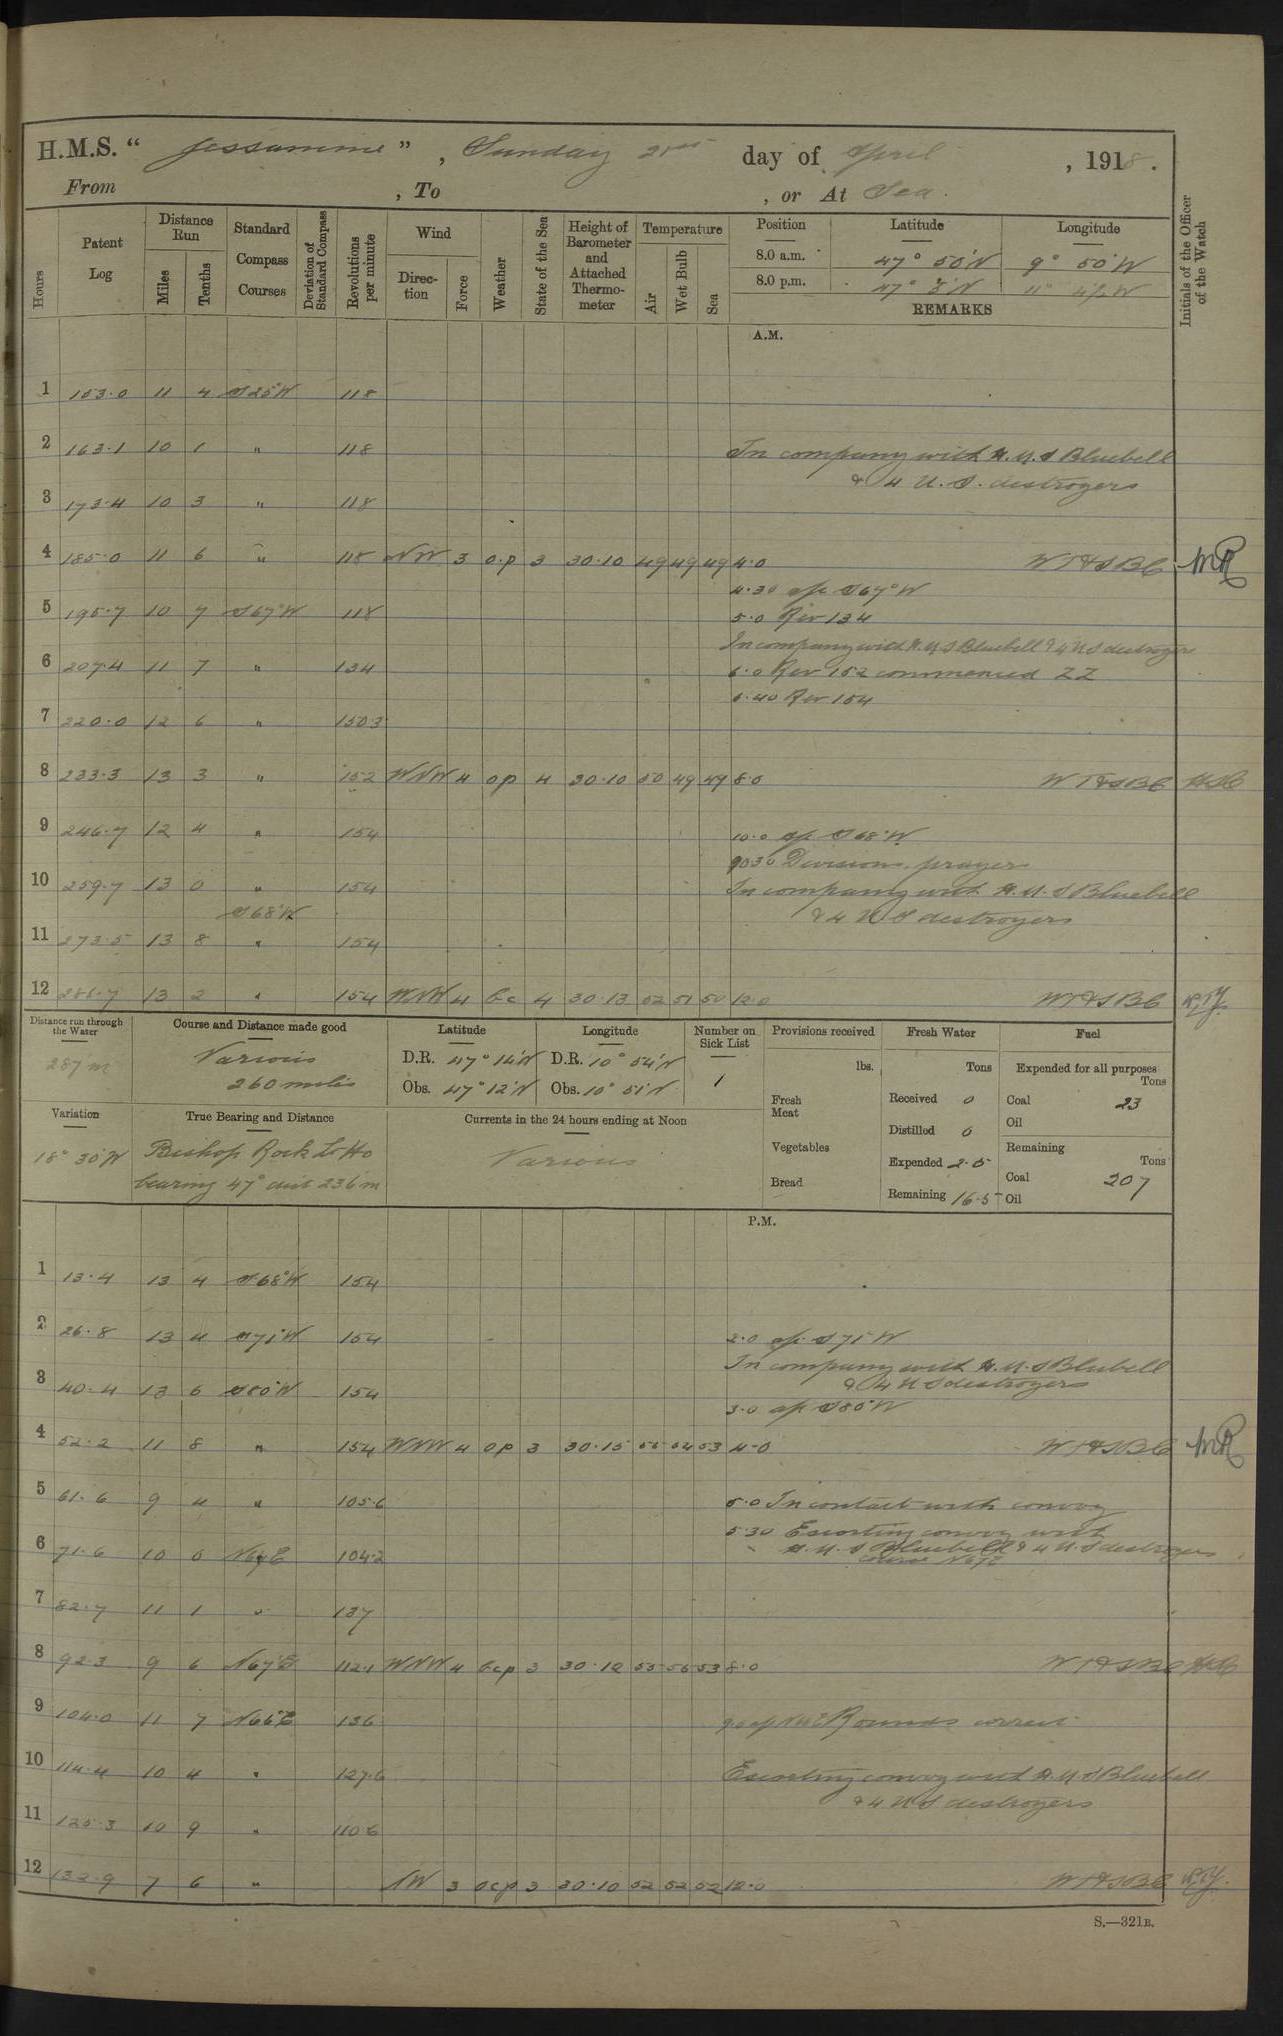 H.M.S. “ Jessamine ” , Sunday 21st day of April , 1918 .
From , To , or At Sea.
Hours
Patent Log
Distance Run
Miles
Tenths
Standard Compass Courses
Deviation of Standard Compass
Revolutions per minute
Wind
Direction
Force
Weather
State of the Sea
Height of Barometer and Attached Thermometer
Temperature
Air
Wet Bulb
Sea
Position Latitude Longitude
8.0 a.m. 47° 50'N 9° 50'W
8.0 p.m. 47° N 11° W
REMARKS
Initials of the Officer of the Watch
A.M.
1 153.0 11 4 S25°W 118
2 163.1 10 1 " 118 In company with H.M.S Bluebell
& 4 U.S. destroyers
3 173.4 10 3 " 118
4 185.0 11 6 " 118 NW 3 o.p 3 30.10 49 49 49 4.0
4.30 S67°W
5 195.7 10 7 S67°W 118 5.0 Rev 134
In company with H.M.S Bluebell & 4 US destroyers
6 207.4 11 7 " 134 6.0 Rev 152 commenced ZZ
6.40 Rev 154
7 220.0 12 6 " 150.3
8 233.3 13 3 " 152 WNW 4 op 4 30.10 50 49 49 8.0
9 246.7 12 4 " 154 10.0 S68°W
9.30 Divisions prayers
10 259.7 13 0 " 154 In company with H.M.S Bluebell
S68°W & 4 US destroyers
11 273.5 13 8 " 154
12 286.7 13 2 " 154 WNW 4 bc 4 30.13 52 51 50 12.0
Distance run through the Water 287 m
Course and Distance made good
Various
260 miles
Latitude
D.R. 47° 14'N
Obs. 47° 12'N
Longitude
D.R. 10° 54'W
Obs. 10° 51'W
Number on Sick List
1
Provisions received
lbs.
Fresh Meat
Vegetables
Bread
Fresh Water
Tons
Received 0
Distilled 0
Expended 2.5
Remaining 16.5
Fuel
Expended for all purposes
Tons
Coal 23
Oil
Remaining
Tons
Coal 207
Oil
Variation
18° 30'W
True Bearing and Distance
Bishop Rock Lt Ho
bearing 47° dist 236 m
Currents in the 24 hours ending at Noon
Various
P.M.
1 13.4 13 4 S68°W 154
2 26.8 13 4 S71°W 154 2.0 S71°W
In company with H.M.S Bluebell
& 4 US destroyers
3 40.4 13 6 S80°W 154
3.0 S80°W
4 52.2 11 8 " 154 WNW 4 op 3 30.15 55 54 53 4.0
5 61.6 9 4 " 105.6 5.0 In contact with convoy
5.30 Escorting convoy with
6 71.6 10 0 N67E 104.2 H.M.S Bluebell & 4 U.S destroyers
course N67E
7 82.7 11 1 " 137
8 92.3 9 6 N67°E 112.1 WNW 4 bcp 3 30.12 55 53 8.0
9 104.0 11 7 N66°E 136 Rounds correct
10 114.4 10 4 " 127.6 Escorting convoy with H.M.S Bluebell
& 4 US destroyers
11 125.3 10 9 " 110.6
12 132.9 7 6 " 3 ocp 3 30.10 52 52 52 12.0
S.—321B.